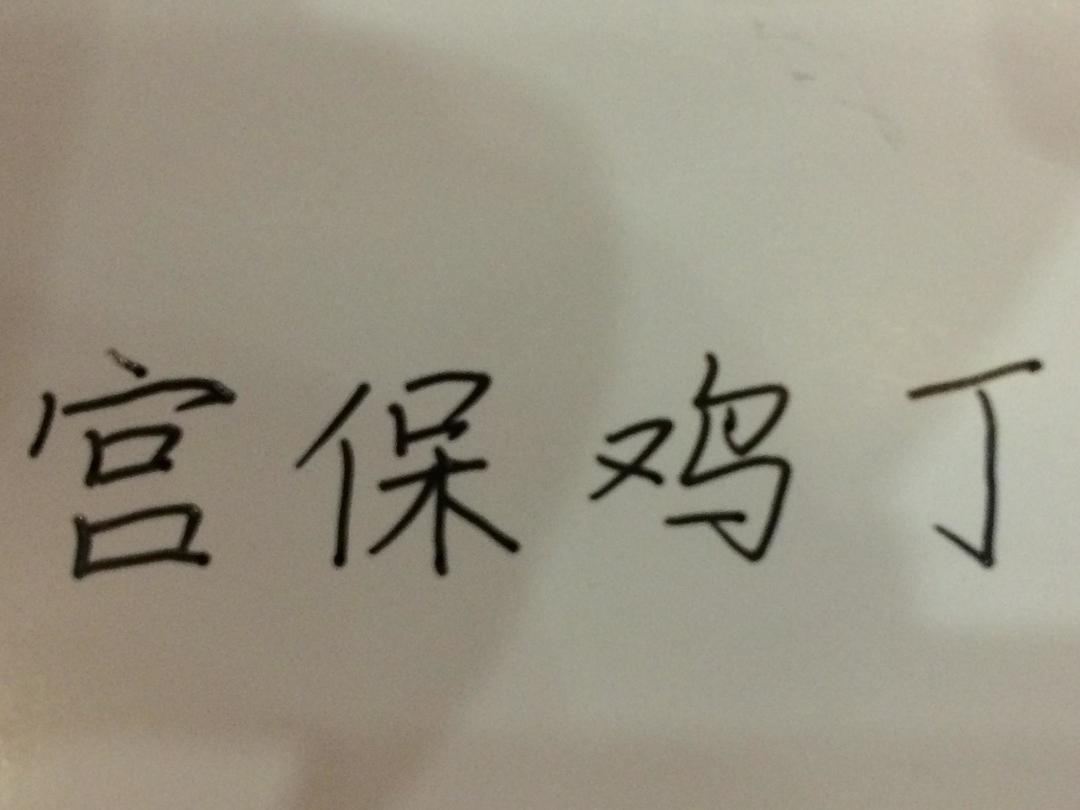 宫保鸡丁